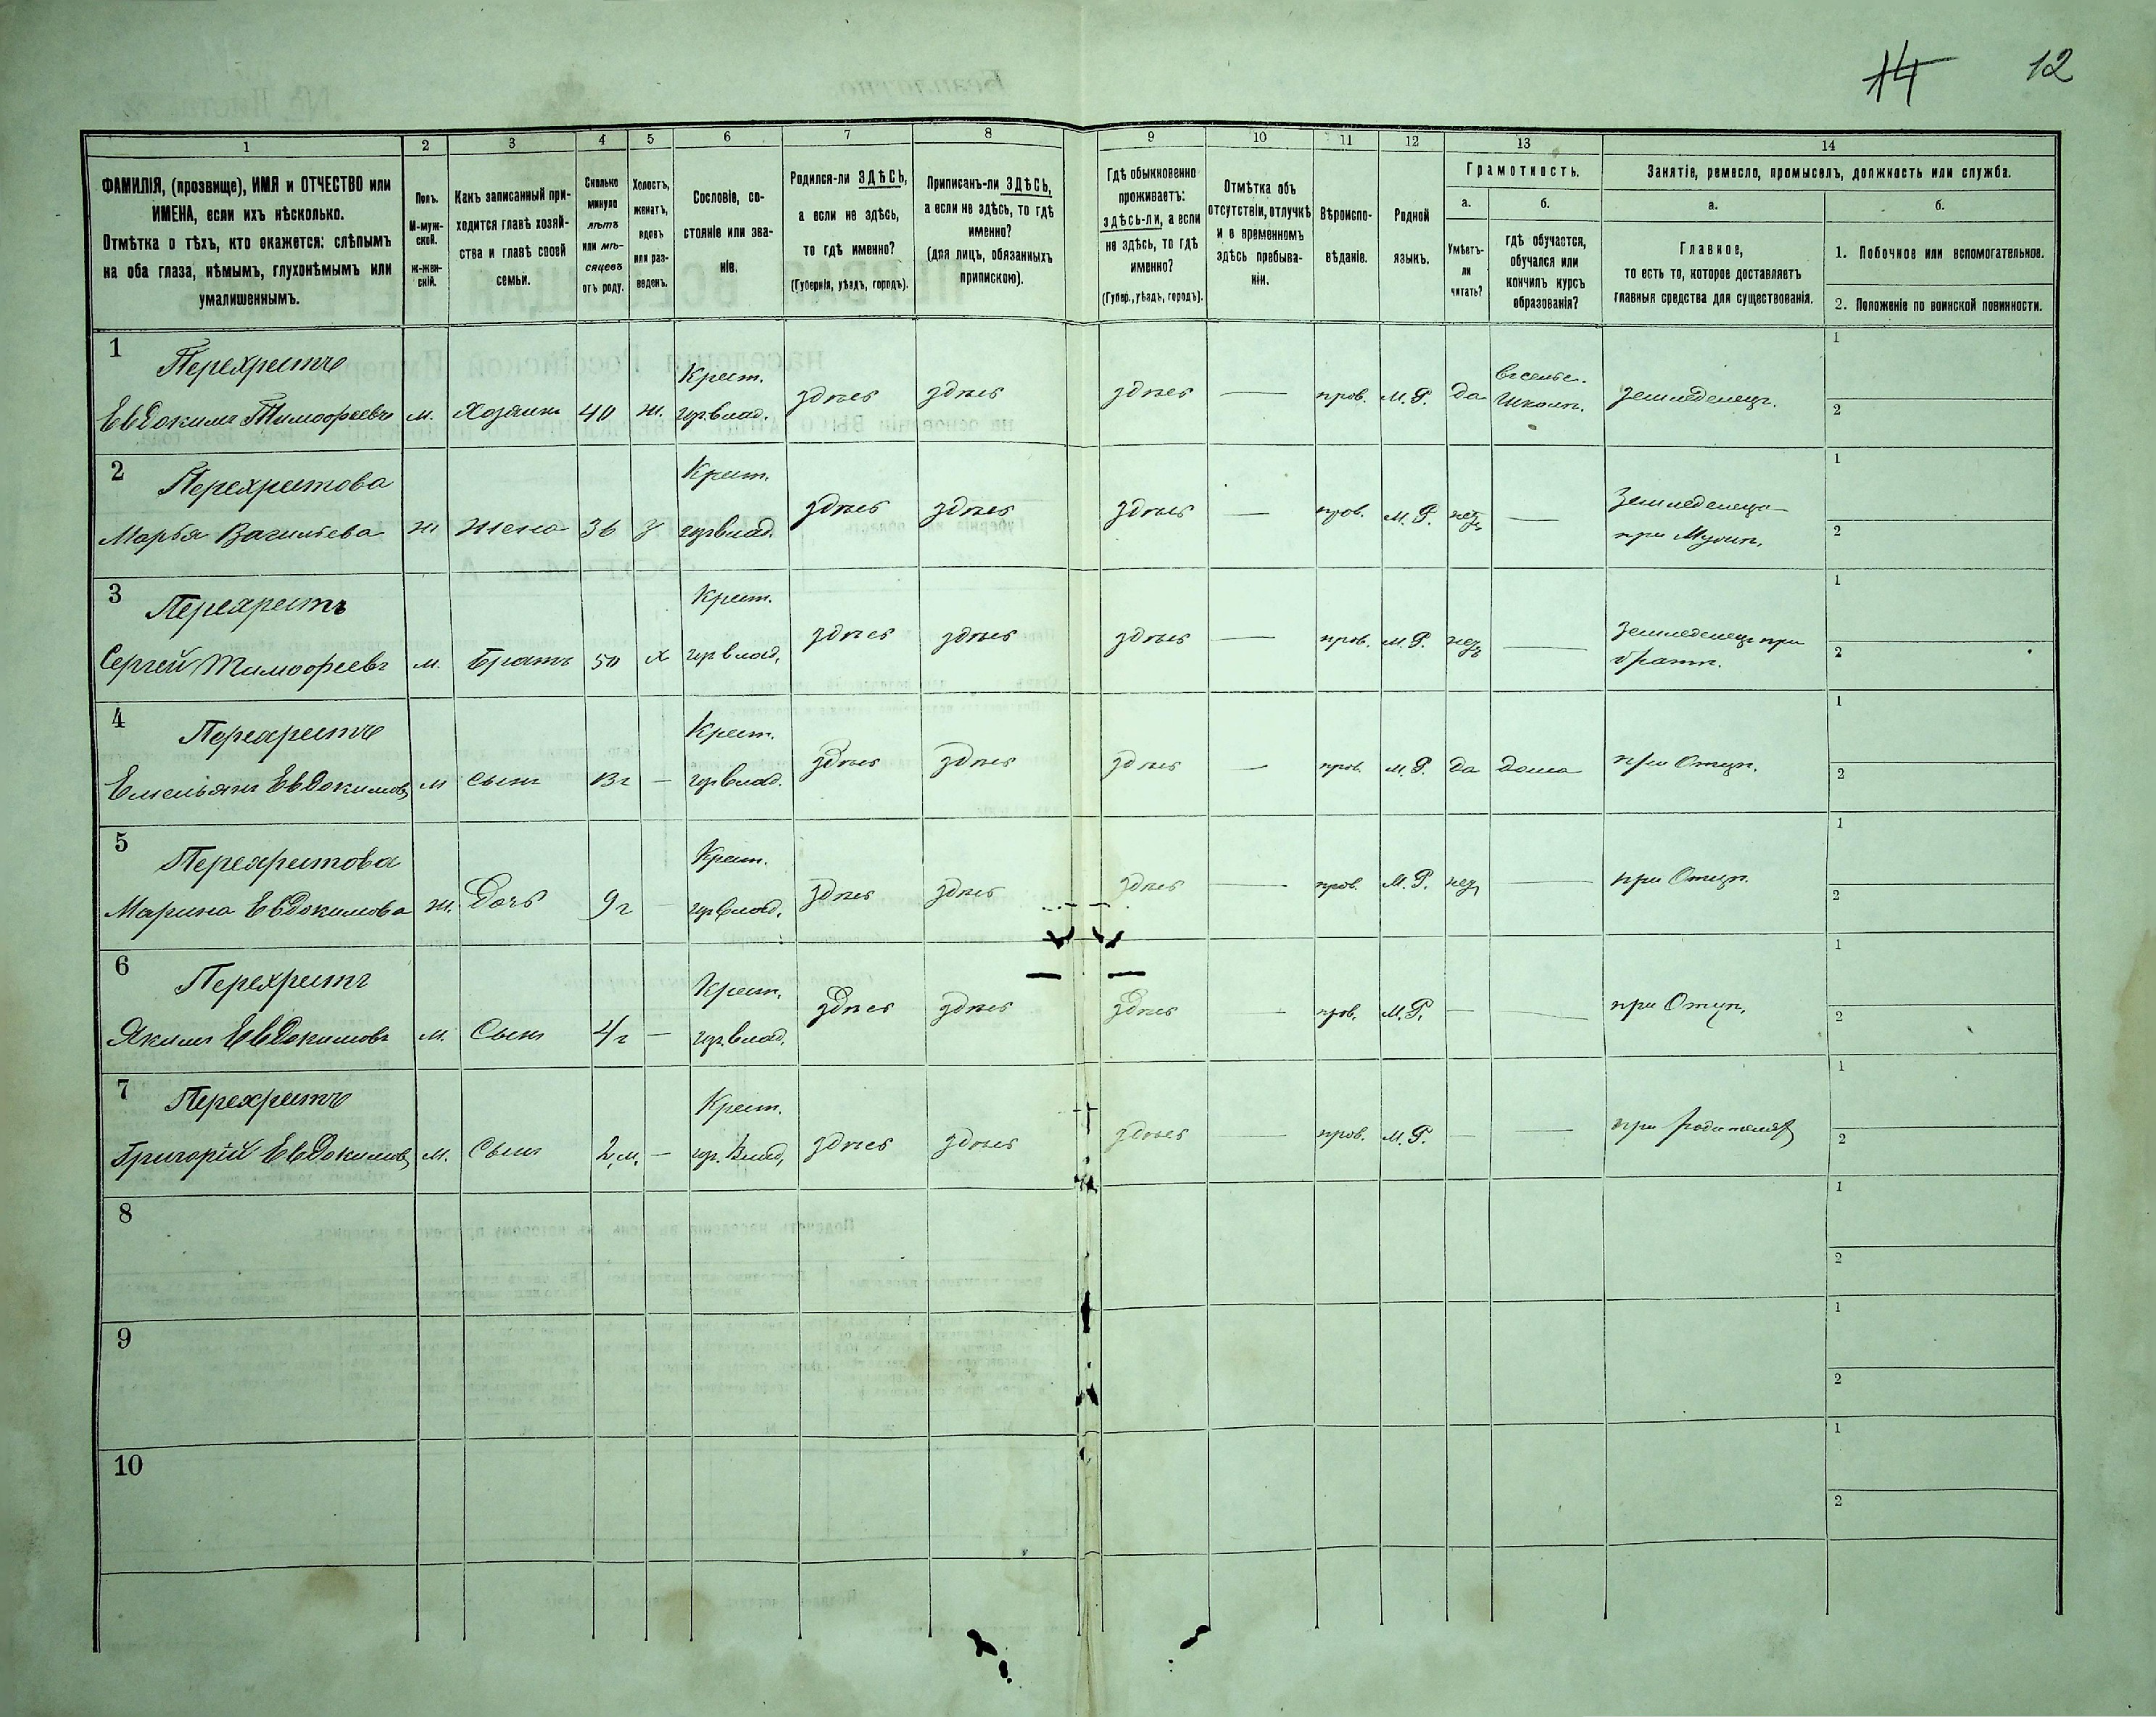 14 12
1 2 3 4 5 6 7 8 9 10 11 12 13 14
ФАМИЛІЯ, (прозвище), ИМЯ и ОТЧЕСТВО или
ИМЕНА, если ихъ нѣсколько.
Отмѣтка о тѣхъ, кто окажется: слѣпымъ
на оба глаза, нѣмымъ, глухонѣмымъ или
умалишеннымъ.
Полъ.
М-муж-
ской.
Ж-жен-
скій.
Какъ записанный при-
ходится главѣ хозяй-
ства и главѣ своей
семьи.
Сколько
минуло
лѣтъ
или мѣ-
сяцевъ
отъ роду.
Холостъ,
женатъ,
вдовъ
или раз-
веденъ.
Сословіе, со-
стояніе или зва-
ніе.
Родился-ли ЗДѢСЬ,
а если не здѣсь,
то гдѣ именно?
(Губернія, уѣздъ, городъ).
Приписанъ-ли ЗДѢСЬ,
а если не здѣсь, то гдѣ
именно?
(для лицъ, обязанныхъ
припискою).
Гдѣ обыкновенно
проживаетъ:
здѣсь-ли, а если
не здѣсь, то гдѣ
именно?
(Губер., уѣздъ, городъ).
Отмѣтка объ
отсутствіи, отлучкѣ
и о временномъ
здѣсь пребыва-
ніи.
Вѣроиспо-
вѣданіе.
Родной
языкъ.
Грамотность.
а.
Умѣетъ-
ли
читать?
б.
гдѣ обучается,
обучался или
кончилъ курсъ
образованія?
Занятіе, ремесло, промыселъ, должность или служба.
а.
Главное,
то есть то, которое доставляетъ
главныя средства для существованія.
б.
1. Побочное или вспомогательное.
2. Положеніе по воинской повинности.
1 Перехристъ
Евдокимъ Тимофеевъ м. Хозяинъ 40 ж. Крест. здѣсь здѣсь здѣсь — пров. М.Р. да Школѣ. земледелецъ. 1 2
2 Перехристова
Марья Васильева ж жена 36 з Крест. здѣсь здѣсь здѣсь — пров. М.Р. нетъ — Земледелецъ при Мужѣ. 1 2
3 Перехристъ
Сергей Тимофеевъ м. Братъ 50 х Крест. здѣсь здѣсь здѣсь — пров. М.Р. нетъ — Земледелецъ при братѣ. 1 2
4 Перехристъ
Емельянъ Евдокимовъ м сынъ 13г — Крест. здѣсь здѣсь здѣсь — пров. М.Р. да дома при Отцѣ. 1 2
5 Перехристова
Марина Евдокимова ж. Дочь 9г — Крест. здѣсь здѣсь здѣсь — пров. М.Р. нетъ — при Отцѣ. 1 2
6 Перехристъ
Якимъ Евдокимовъ м. Сынъ 4г — Крест. здѣсь здѣсь здѣсь — пров. М.Р. — — при Отцѣ. 1 2
7 Перехристъ
Григорій Евдокимовъ м. Сынъ 2.м. — Крест. здѣсь здѣсь здѣсь — пров. М.Р. — — при родителяхъ 1 2
8 1 2
9 1 2
10 1 2